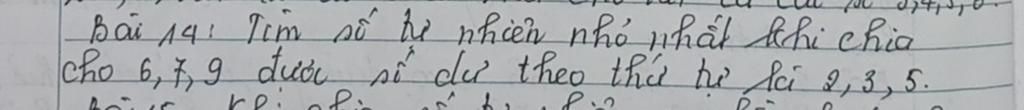 Bài 14: Tìm số tự nhiên nhỏ nhất khi chia
cho 6, 7, 9 được số dư theo thứ tự là 2, 3, 5.